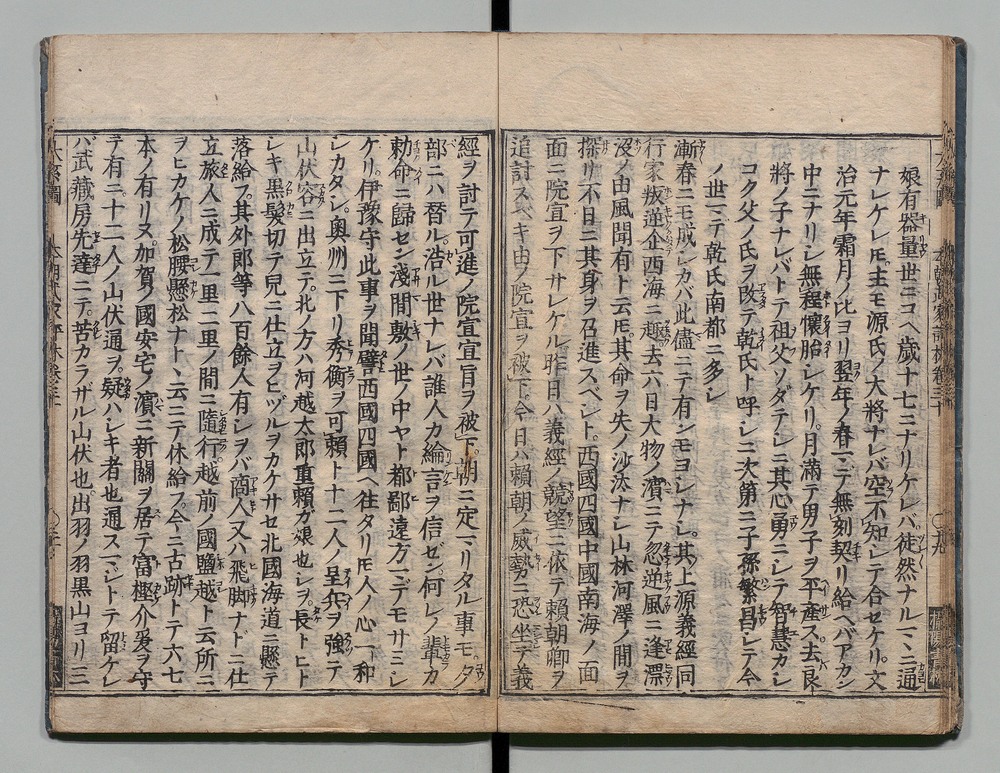 娘有器量世ニコヘ歳十七ニナリケレバ徒然ナルマヽニ通
ナレケレ𪜈主モ源氏ノ大將ナレバ空不知シテ合セケリ。文
治元年霜月ノ比ヨリ翌年ノ春マデ無刻契リ給ヘバアカン
中ニナリシ無程懷胎シケリ。月滿テ男子ヲ平產ス。去良
將ノ子ナレバトテ祖父ソダテシニ其心勇ニシテ智慧カシ
コク父ノ氏ヲ改テ乾氏ト呼シニ次第ニ子孫繁昌シテ今
ノ世マデ乾氏南都ニ多シ
漸春ニモ成シカバ此儘ニテ有ンモヨシナシ。其上源義經同
行家叛逆企西海ニ趣去六日大物ノ濱ニテ忽逆風ニ逢漂
沒ノ由風聞有ト云𪜈其命ヲ失ノ沙汰ナシ山林河澤ノ間ヲ
探リ不日ニ其身ヲ召進スベシト。西國四國中國南海ノ面
面ニ院宣ヲ下サレケル昨日ハ義經ノ競望ニ依テ賴朝卿ヲ
追討スベキ由ノ院宣ヲ被下。今日ハ賴朝ノ威勢ニ恐坐テ義
經ヲ討テ可進ノ院宣宣旨ヲ被下。朝ニ定マリタル車モタ
部ニハ替ル。浩ル世ナレバ誰人カ綸言ヲ信ゼン。何レノ輩カ
勅命ニ歸セン淺間敷ノ世ノ中ヤト都鄙遠方マデモサミシ
ケリ。伊豫守此事ヲ聞譬西國四國ヘ往タリ𪜈人ノ心一和
シカタシ。奧州ニ下リ秀衡ヲ可賴ト十二人ノ兵ヲ強テ
山伏容ニ出立テ。北ノ方ハ河越太郎重賴カ娘也シヲ。長トヒト
シキ黑髮切テ兒ニ仕立ヲヒヅルヲカケサセ北國海道ニ懸テ
落給フ。其外郎等八百餘人有シヲバ商人又ハ飛脚ナドニ仕
立旅人ニ成テ一里二里ノ間ニ隨行。越前ノ國鹽越ト云所ニ
ヲヒカケノ松腰懸松ナトヽ云ニテ休給フ。今ニ古跡トテ六七
本ノ有リヌ。加賀ノ國安宅ノ濱ニ新關ヲ居テ富樫介爰ヲ守
テ有ニ十二人ノ山伏通ヲ。疑ハシキ者也通スマジトテ留ケレ
バ武藏房先達ニテ。苦カラザル山伏也。出羽ノ羽黑山ヨリ三